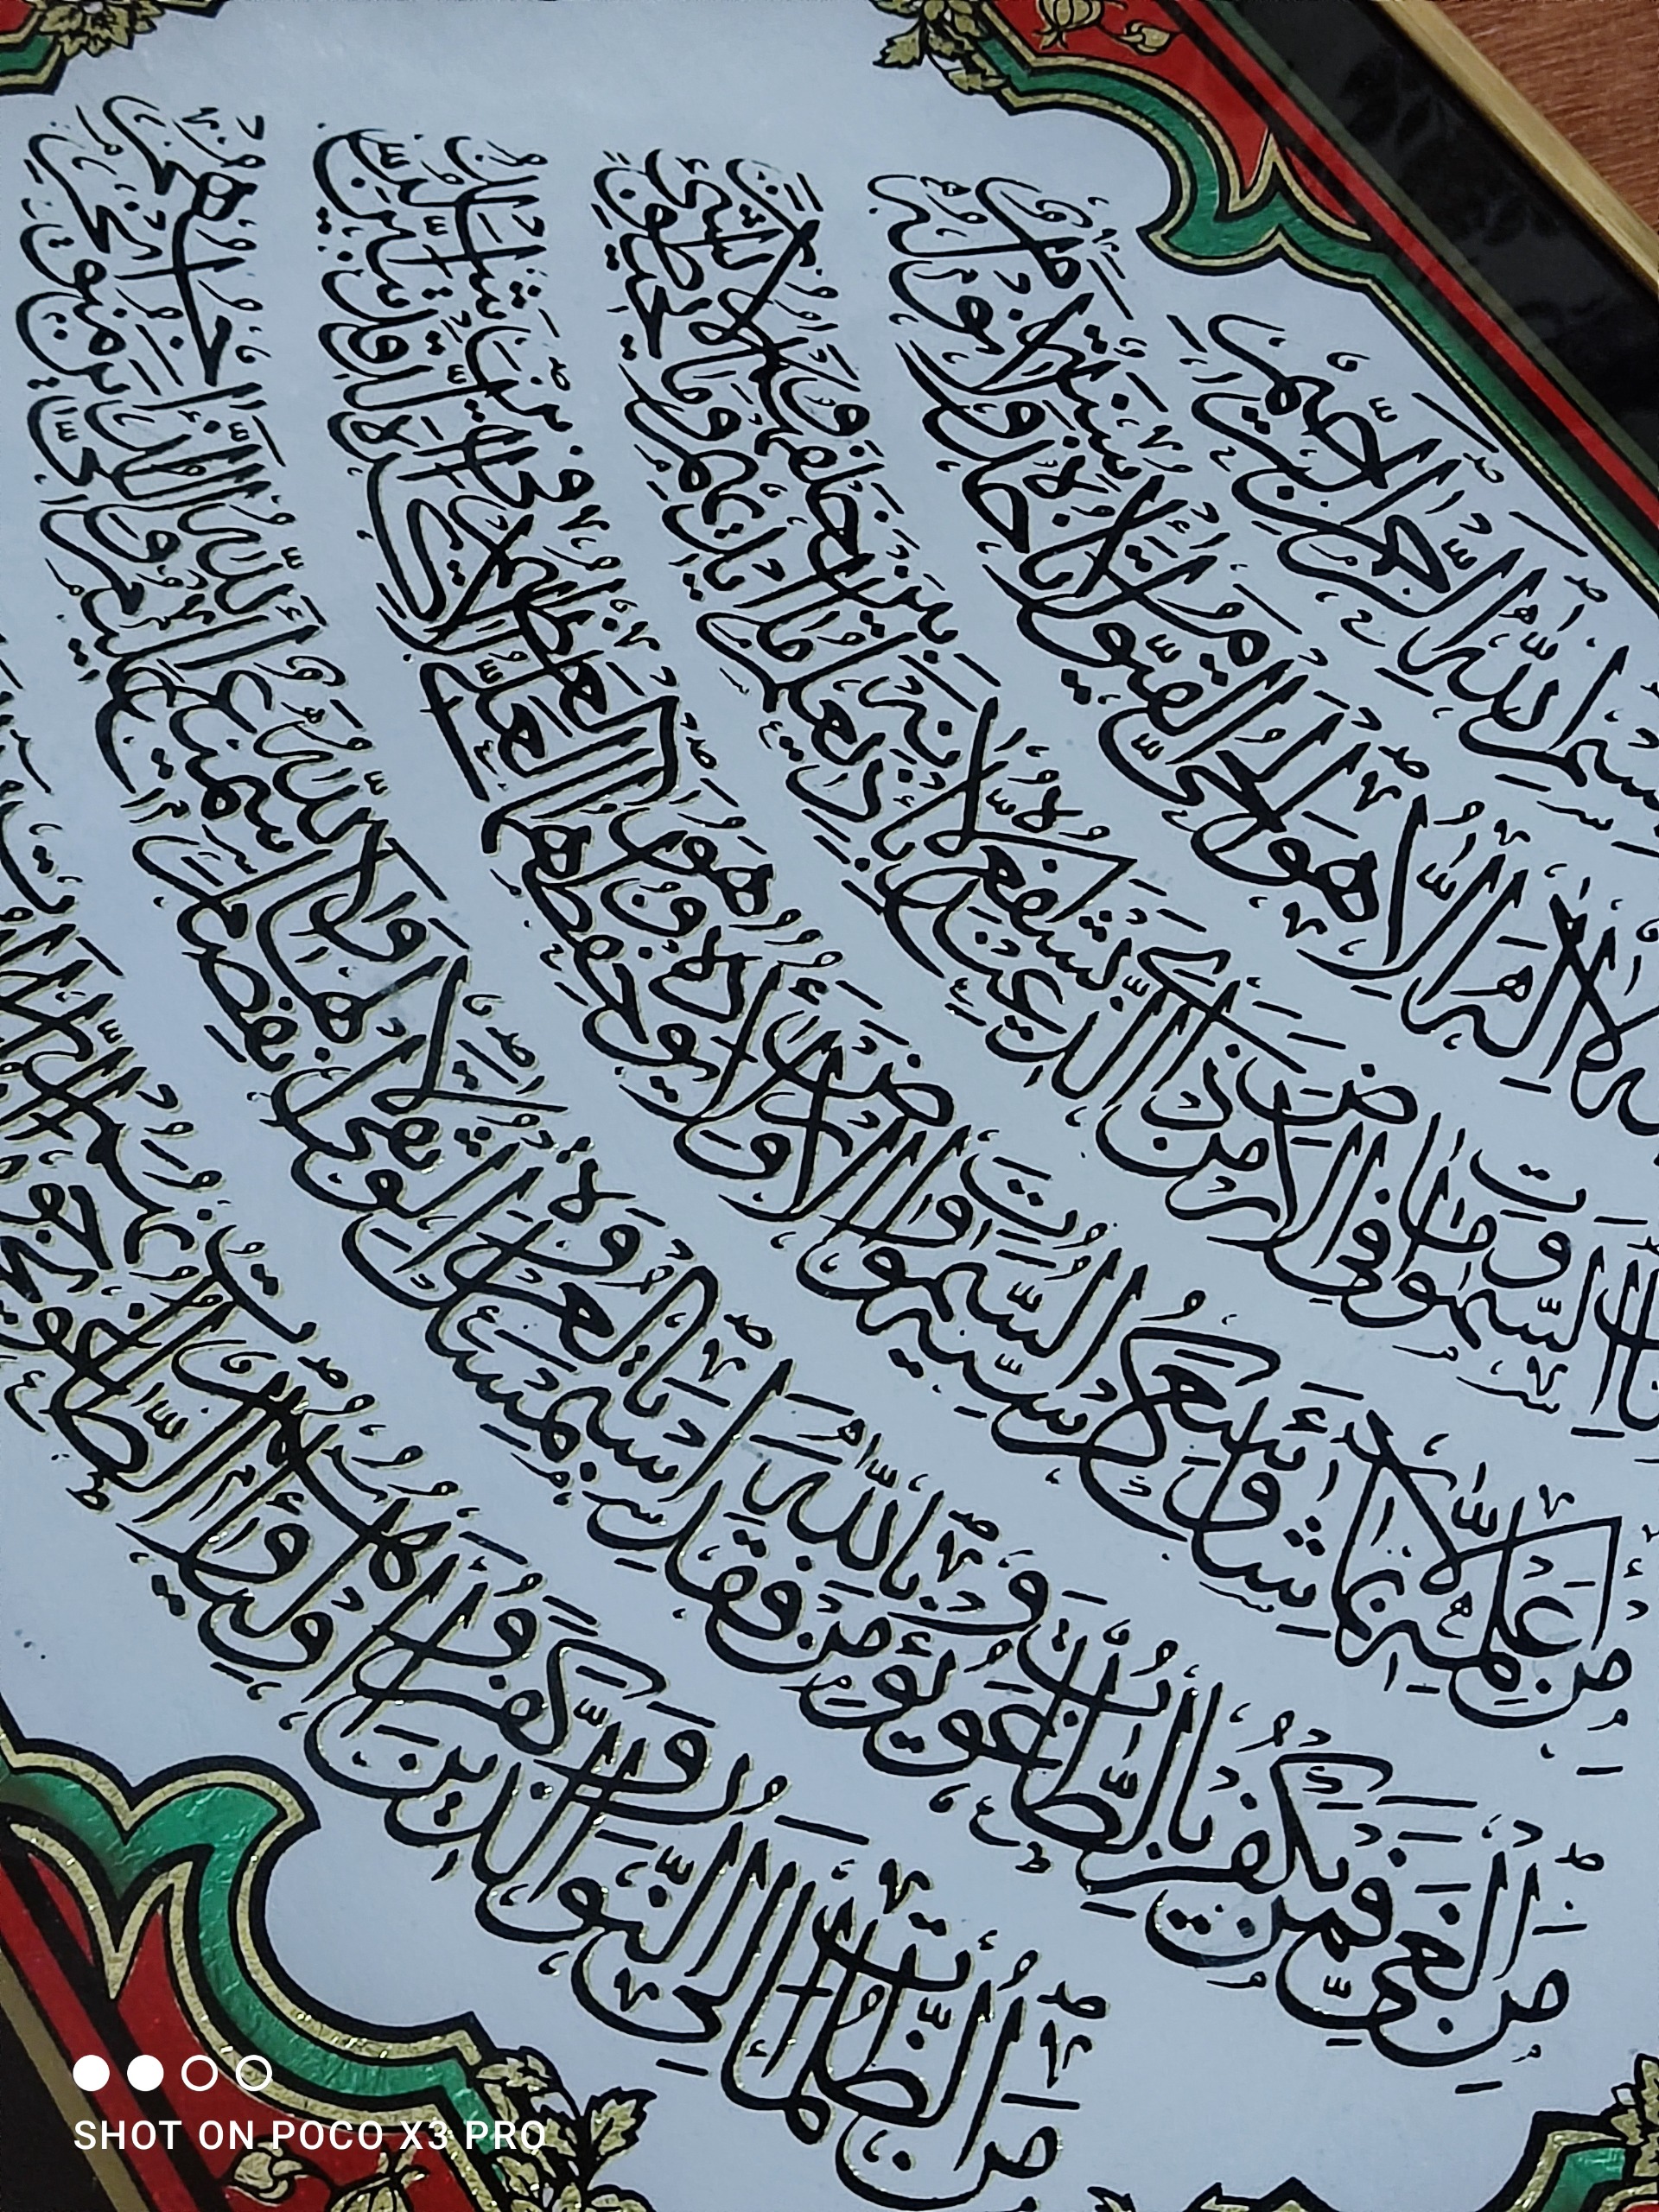 بِسْمِ اللّٰهِ الرَّحْمٰنِ الرَّحِيْمِ
لَآ اِلٰهَ اِلَّا هُوَ الْحَيُّ الْقَيُّوْمُ لَا تَأْخُذُهٗ سِنَةٌ وَّلَا نَوْمٌ لَهٗ
السَّمٰوٰتِ وَمَا فِى الْاَرْضِ مَنْ ذَا الَّذِيْ يَشْفَعُ عِنْدَهٗٓ اِلَّا بِاِذْنِهٖ يَعْلَمُ مَا بَيْنَ اَيْدِيْهِمْ وَمَا خَلْفَهُمْ وَلَا يُحِيْطُوْنَ بِشَيْءٍ
مِّنْ عِلْمِهٖٓ اِلَّا بِمَا شَآءَ وَسِعَ كُرْسِيُّهُ السَّمٰوٰتِ وَالْاَرْضَ وَلَا يَـُٔوْدُهٗ حِفْظُهُمَا وَهُوَ الْعَلِيُّ الْعَظِيْمُ لَآ اِكْرَاهَ فِى الدِّيْنِ قَدْ تَّبَيَّنَ الرُّشْدُ
مِنَ الْغَيِّ فَمَنْ يَّكْفُرْ بِالطَّاغُوْتِ وَيُؤْمِنْ بِاللّٰهِ فَقَدِ اسْتَمْسَكَ بِالْعُرْوَةِ الْوُثْقٰى لَا انْفِصَامَ لَهَا وَاللّٰهُ سَمِيْعٌ عَلِيْمٌ اَللّٰهُ وَلِيُّ الَّذِيْنَ اٰمَنُوْا يُخْرِجُهُمْ
مِّنَ الظُّلُمٰتِ اِلَى النُّوْرِ وَالَّذِيْنَ كَفَرُوْٓا اَوْلِيٰٓـُٔهُمُ الطَّاغُوْتُ
SHOT ON POCO X3 PRO